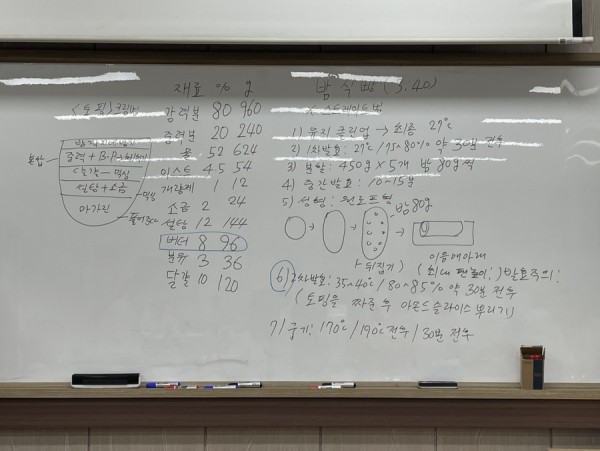 재료 % g
강력분 80 960
중력분 20 240
물 52 624
이스트 4.5 54
개량제 1 12
소금 2 24
설탕 12 144
버터 8 96
분유 3 36
달걀 10 120
<토핑> 크림법
중력 + B.P
달걀
설탕 + 소금
마가린
혼합
풀어준다
밤식빵 (3:40)
<스트레이트법
1) 유지 클린업 → 최종 27℃
2) 1차발효: 27℃ / 75~80% 약 30분 전후
3) 분할: 450g × 5개 밤 80g씩
4) 중간발효: 10~15분
5) 성형: 원로프형
밤 80g
뒤집기
이음매아래
6) 2차발효: 35~40℃ / 80~85% 약 30분 전후
(토핑을 짜준 후 아몬드슬라이스 뿌리기)
7) 굽기: 170℃ / 190℃ 전후 / 30분 전후